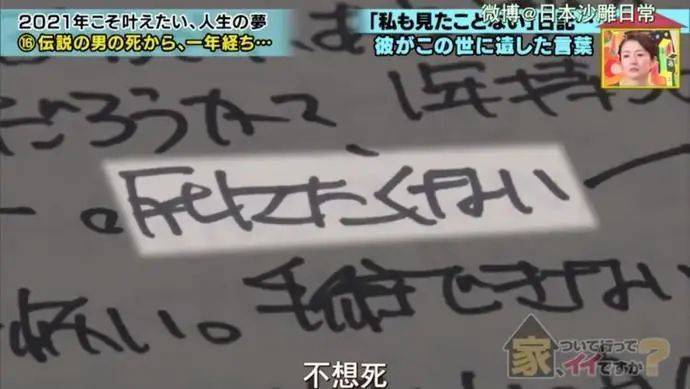 2021年こそ叶えたい、人生の夢
⑯伝説の男の死から、一年経ち…
微博@日本沙雕日常
「私も見たことない」日記
彼がこの世に遺した言葉
だろうかって、1年持
。死にたくない
い。手術できない
家、ついて行ってイイですか?
不想死